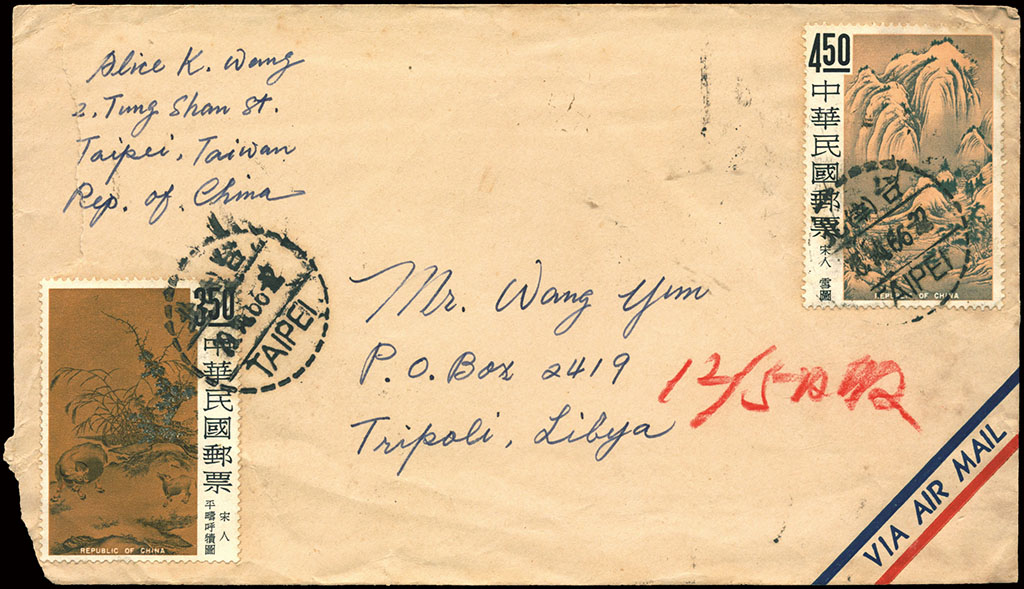 Alice K. Wang
2, Tung Shan St.
Taipei, Taiwan
Rep. of China
4.50
中華民國郵票
宋人 雪圖
REPUBLIC OF CHINA
TAIPEI
Mr. Wang Yun
P.O. Box 2419
Tripoli, Libya
12/5日
3.50
中華民國郵票
宋人
平疇呼犢圖
REPUBLIC OF CHINA
TAIPEI
VIA AIR MAIL